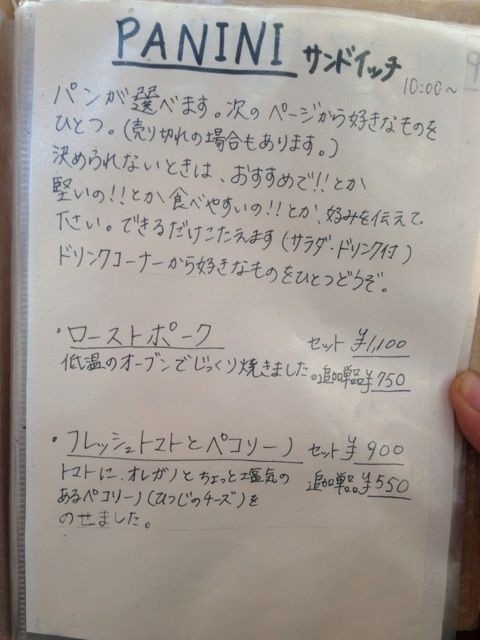 PANINI サンドイッチ
10:00〜
パンが選べます。次のページから好きなものを
ひとつ。(売り切れの場合もあります。)
決められないときは、おすすめで!!とか
堅いの!!とか食べやすいの!!とか、好みを伝えて
下さい。できるだけこたえます(サラダ・ドリンク付)
ドリンクコーナーから好きなものをひとつどうぞ。
・ローストポーク セット ¥1,100
低温のオーブンでじっくり焼きました。追加単品¥750
・フレッシュトマトとペコリーノ セット ¥900
トマトに、オレガノとちょっと塩気の 追加単品¥550
あるペコリーノ(ひつじのチーズ)を
のせました。